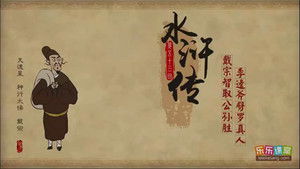 水浒传
第五十三回
李逵斧劈罗真人
戴宗智取公孙胜
天速星 神行太保 戴宗
乐乐课堂
leleketang.com